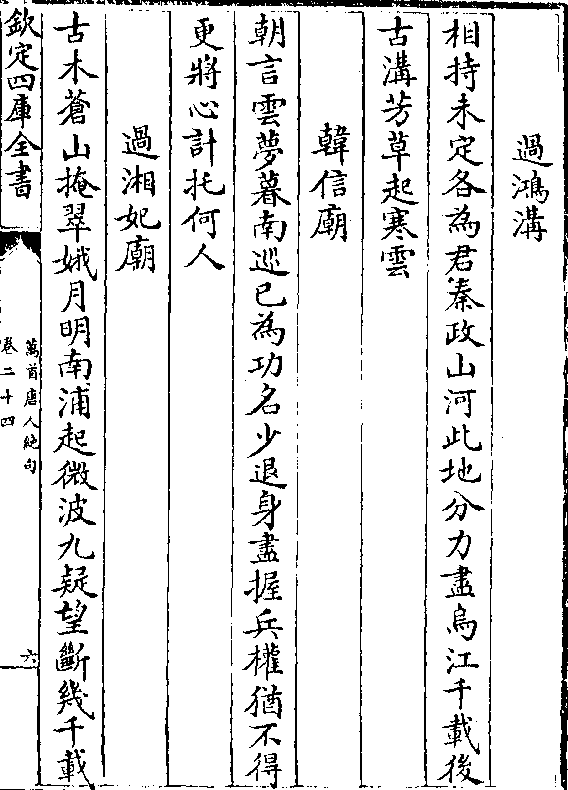 過鴻溝
相持未定各為君秦政山河此地分力盡烏江千載後
古溝芳草起寒雲
韓信廟
朝言雲夢暮南巡已為功名少退身盡握兵權猶不得
更將心計托何人
過湘妃廟
古木蒼山掩翠娥月明南浦起微波九疑望斷幾千載
欽定四庫全書
萬首唐人絕句
卷二十四
六